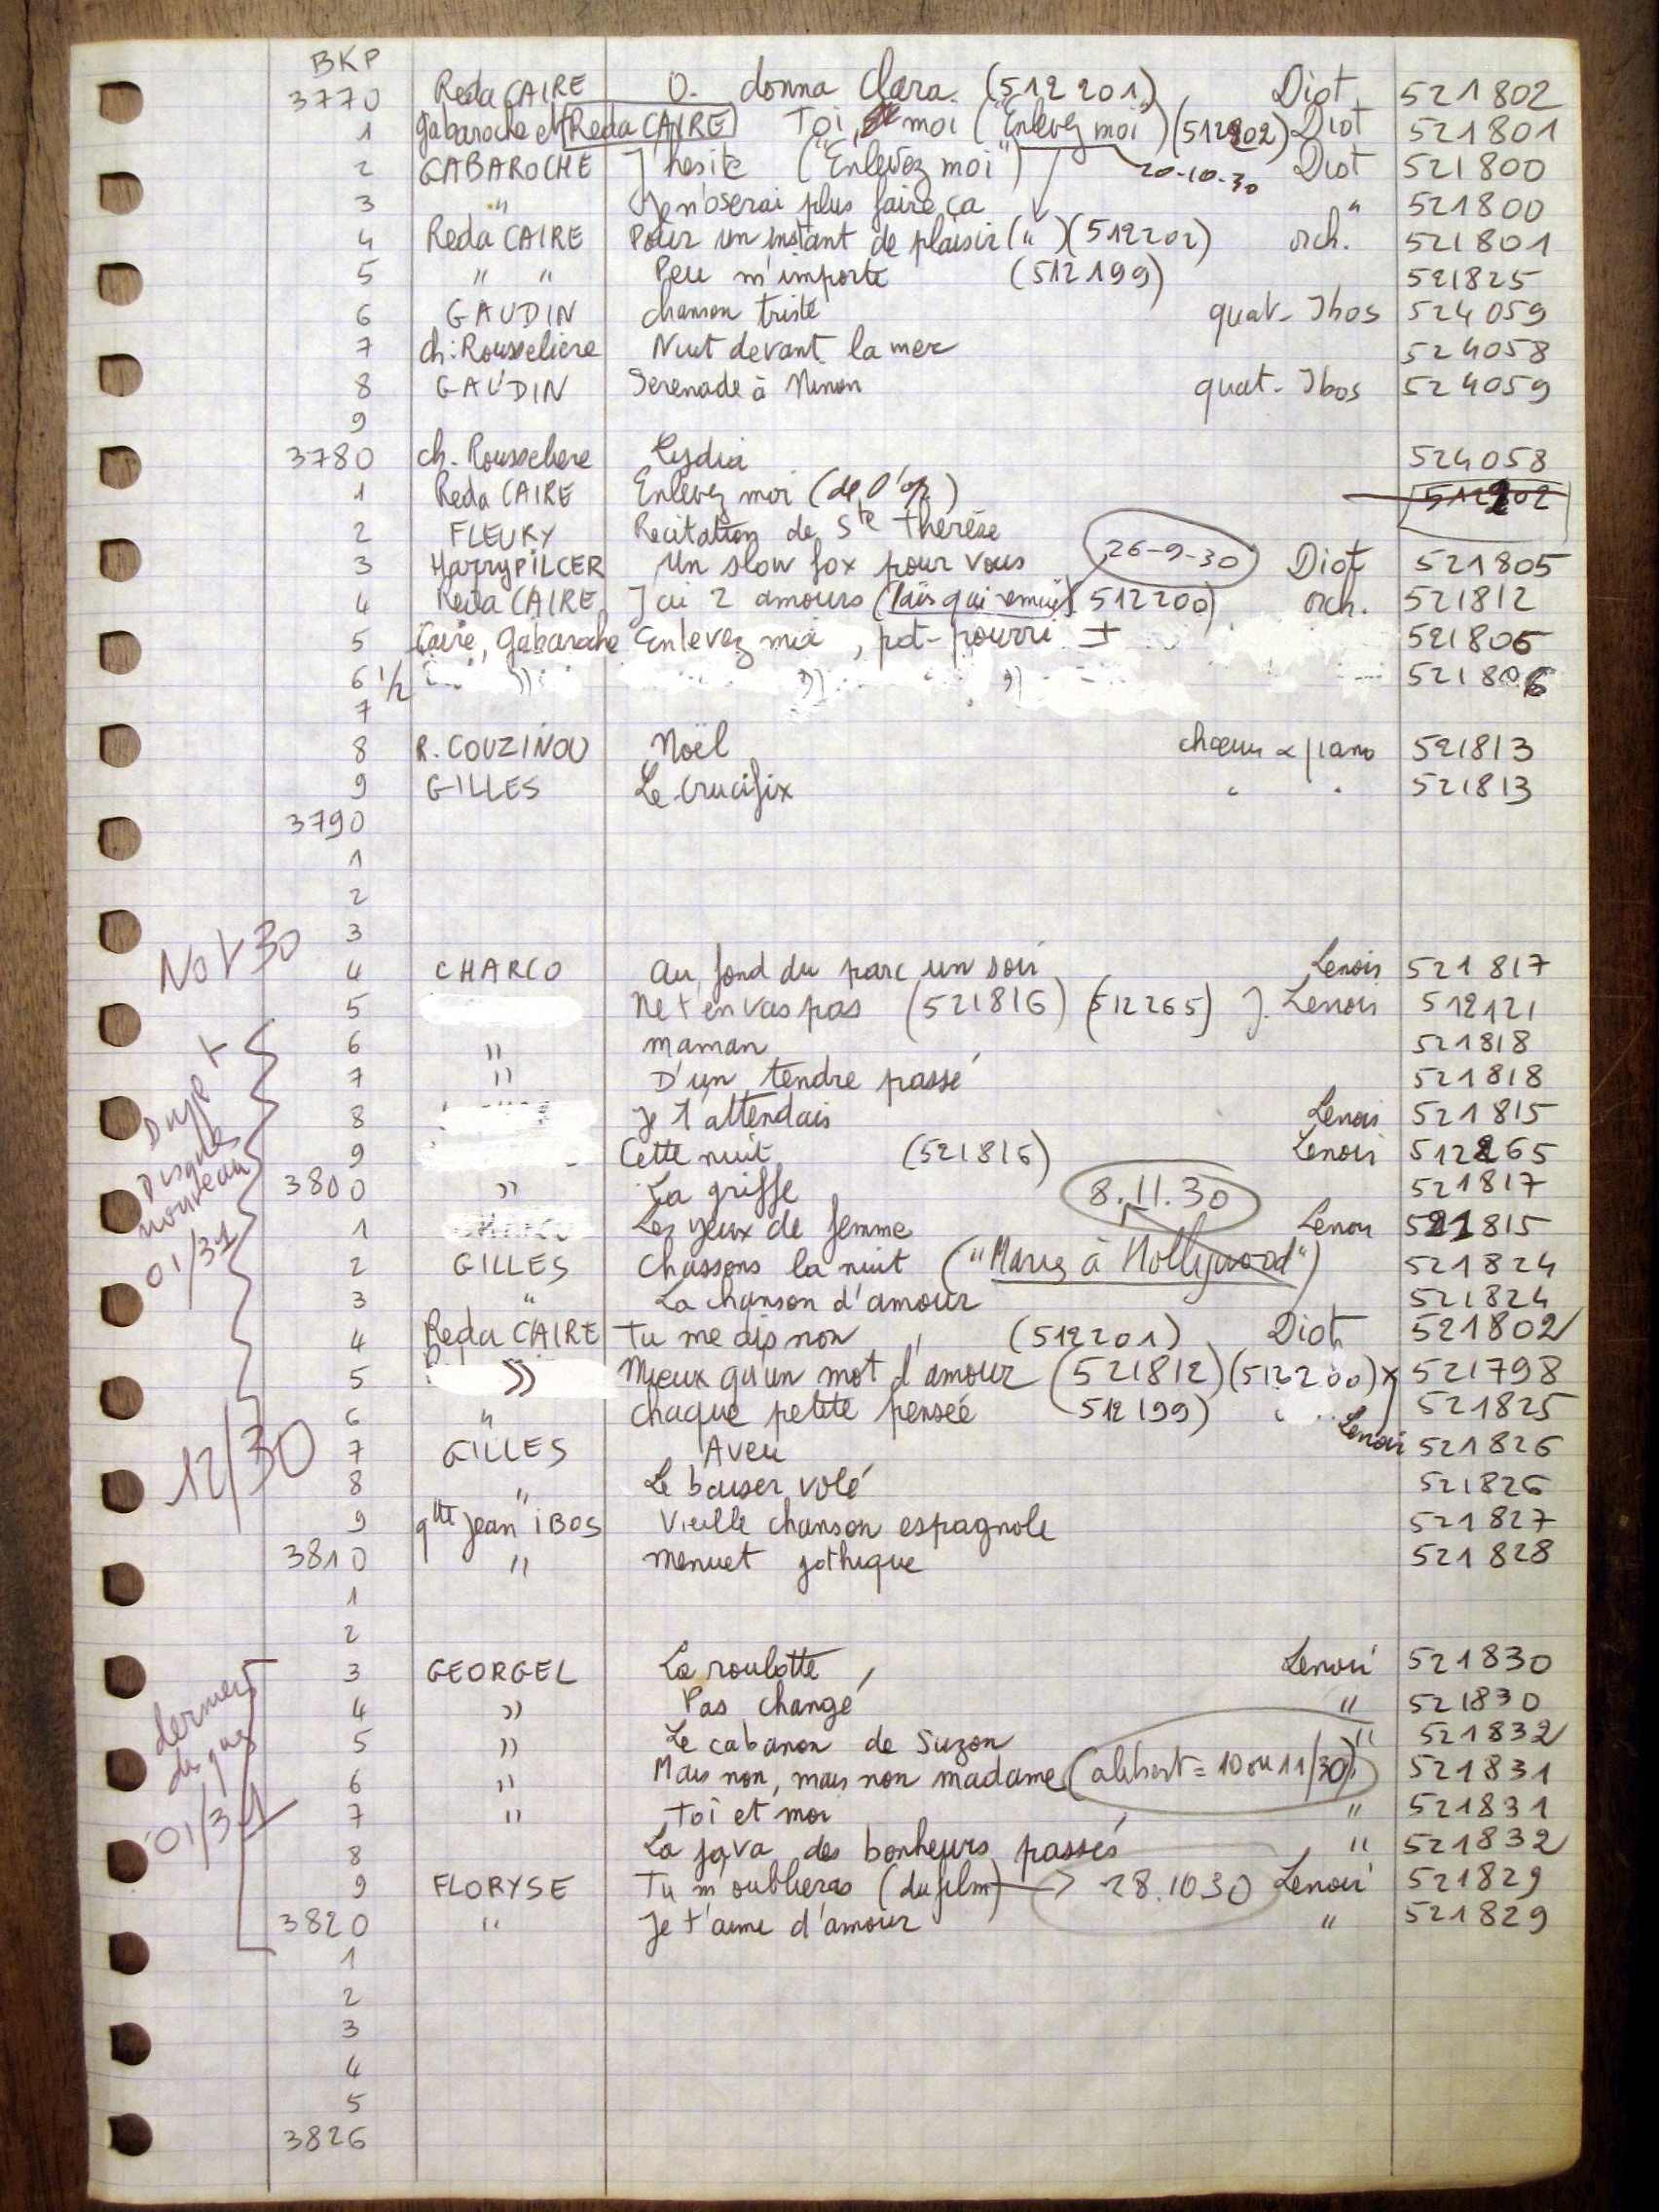 BKP
3770 Reda CAIRE O. donna Clara. (512201) Diot 521802
1 Gabaroche et Reda CAIRE Toi, moi ("Enlevez moi") (512202) Diot 521801
2 GABAROCHE J'hesite ("Enlevez moi") 20-10-30 Diot 521800
3 " Je n'oserai plus faire ça " 521800
4 Reda CAIRE Pour un instant de plaisir (") (512202) orch. 521801
5 " " Peu m'importe (512199) 521825
6 GAUDIN chanson triste quat- Ibos 524059
7 ch: Rousseliere Nuit devant la mer 524058
8 GAUDIN Serenade à Ninon quat- Ibos 524059
9
3780 ch. Rousseliere Lydia 524058
1 Reda CAIRE Enlevez moi (de l'op) 512202
2 FLEURY Recitation de Ste Thérèse
3 Harry PILCER Un slow fox pour vous 26-9-30 Diot 521805
4 Reda CAIRE J'ai 2 amours ( 512200) orch. 521812
5 Caire, Gabaroche Enlevez moi, pot-pourri I 521806
6 1/2 " " " 521806
7
8 R. COUZINOU Noël chœurs & piano 521813
9 GILLES Le Crucifix " " 521813
3790
1
2
3
Nov 30
4 CHARCO Au fond du parc un soir Lenoir 521817
5 Ne t'en vas pas (521816) (512265) J. Lenoir 512121
6 " maman 521818
7 " D'un tendre passé 521818
8 Je t'attendais Lenoir 521815
9 Cette nuit (521816) Lenoir 512265
Disques nouveau 01/31
3800 " La griffe 8.11.30 521817
1 CHARCO Les yeux de femme Lenoir 521815
2 GILLES Chassons la nuit ("Marius à Hollywood") 521824
3 " La chanson d'amour 521824
4 Reda CAIRE Tu me dis non (512201) Diot 521802
5 " Mieux qu'un mot d'amour (521812) (512200) x 521798
6 " chaque petite pensée (512199) 521825
12/30
7 GILLES Aveu Lenoir 521826
8 " Le baiser volé 521826
9 qtte Jean IBOS Vieille chanson espagnole 521827
3810 " menuet gothique 521828
1
2
3 GEORGEL La roulotte Lenoir 521830
4 " Pas changé " 521830
5 " Le cabanon de Suzon " 521832
6 " Mais non, mais non madame (alibert = 10 ou 11/30) " 521831
7 " Toi et moi " 521831
8 La java des bonheurs passés " 521832
dernier disques 01/31
9 FLORYSE Tu m'oublieras (du film) → 28.10 30 Lenoir 521829
3820 " Je t'aime d'amour " 521829
1
2
3
4
5
3826